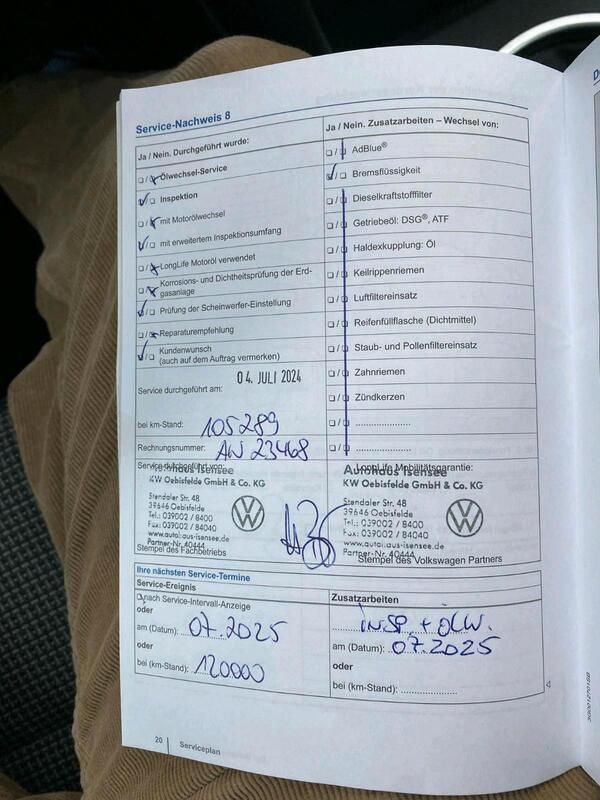 Service-Nachweis 8
Ja / Nein. Durchgeführt wurde:
Ölwechsel-Service
Inspektion
mit Motorölwechsel
mit erweitertem Inspektionsumfang
LongLife Motoröl verwendet
Korrosions- und Dichtheitsprüfung der Erd-
gasanlage
Prüfung der Scheinwerfer-Einstellung
Reparaturempfehlung
Kundenwunsch
(auch auf dem Auftrag vermerken)
Service durchgeführt am: 04. JULI 2024
bei km-Stand: 105289
Rechnungsnummer: AW 23468
Ja / Nein. Zusatzarbeiten – Wechsel von:
AdBlue®
Bremsflüssigkeit
Dieselkraftstofffilter
Getriebeöl: DSG®, ATF
Haldexkupplung: Öl
Keilrippenriemen
Luftfiltereinsatz
Reifenfüllflasche (Dichtmittel)
Staub- und Pollenfiltereinsatz
Zahnriemen
Zündkerzen
Service durchgeführt von:
Autohaus Isensee
KW Oebisfelde GmbH & Co. KG
Stendaler Str. 48
39646 Oebisfelde
Tel.: 039002 / 8400
Fax: 039002 / 8440
www.autohaus-isensee.de
Partner-Nr. 40444
Stempel des Fachbetriebs
LongLife Mobilitätsgarantie:
Autohaus Isensee
KW Oebisfelde GmbH & Co. KG
Stendaler Str. 48
39646 Oebisfelde
Tel.: 039002 / 8400
Fax: 039002 / 8440
www.autohaus-isensee.de
Partner-Nr. 40444
Stempel des Volkswagen Partners
Ihre nächsten Service-Termine
Service-Ereignis
nach Service-Intervall-Anzeige
oder
am (Datum): 07.2025
oder
bei (km-Stand): 120000
Zusatzarbeiten
INSP. + ÖLW.
am (Datum): 07.2025
oder
bei (km-Stand):
20 Serviceplan